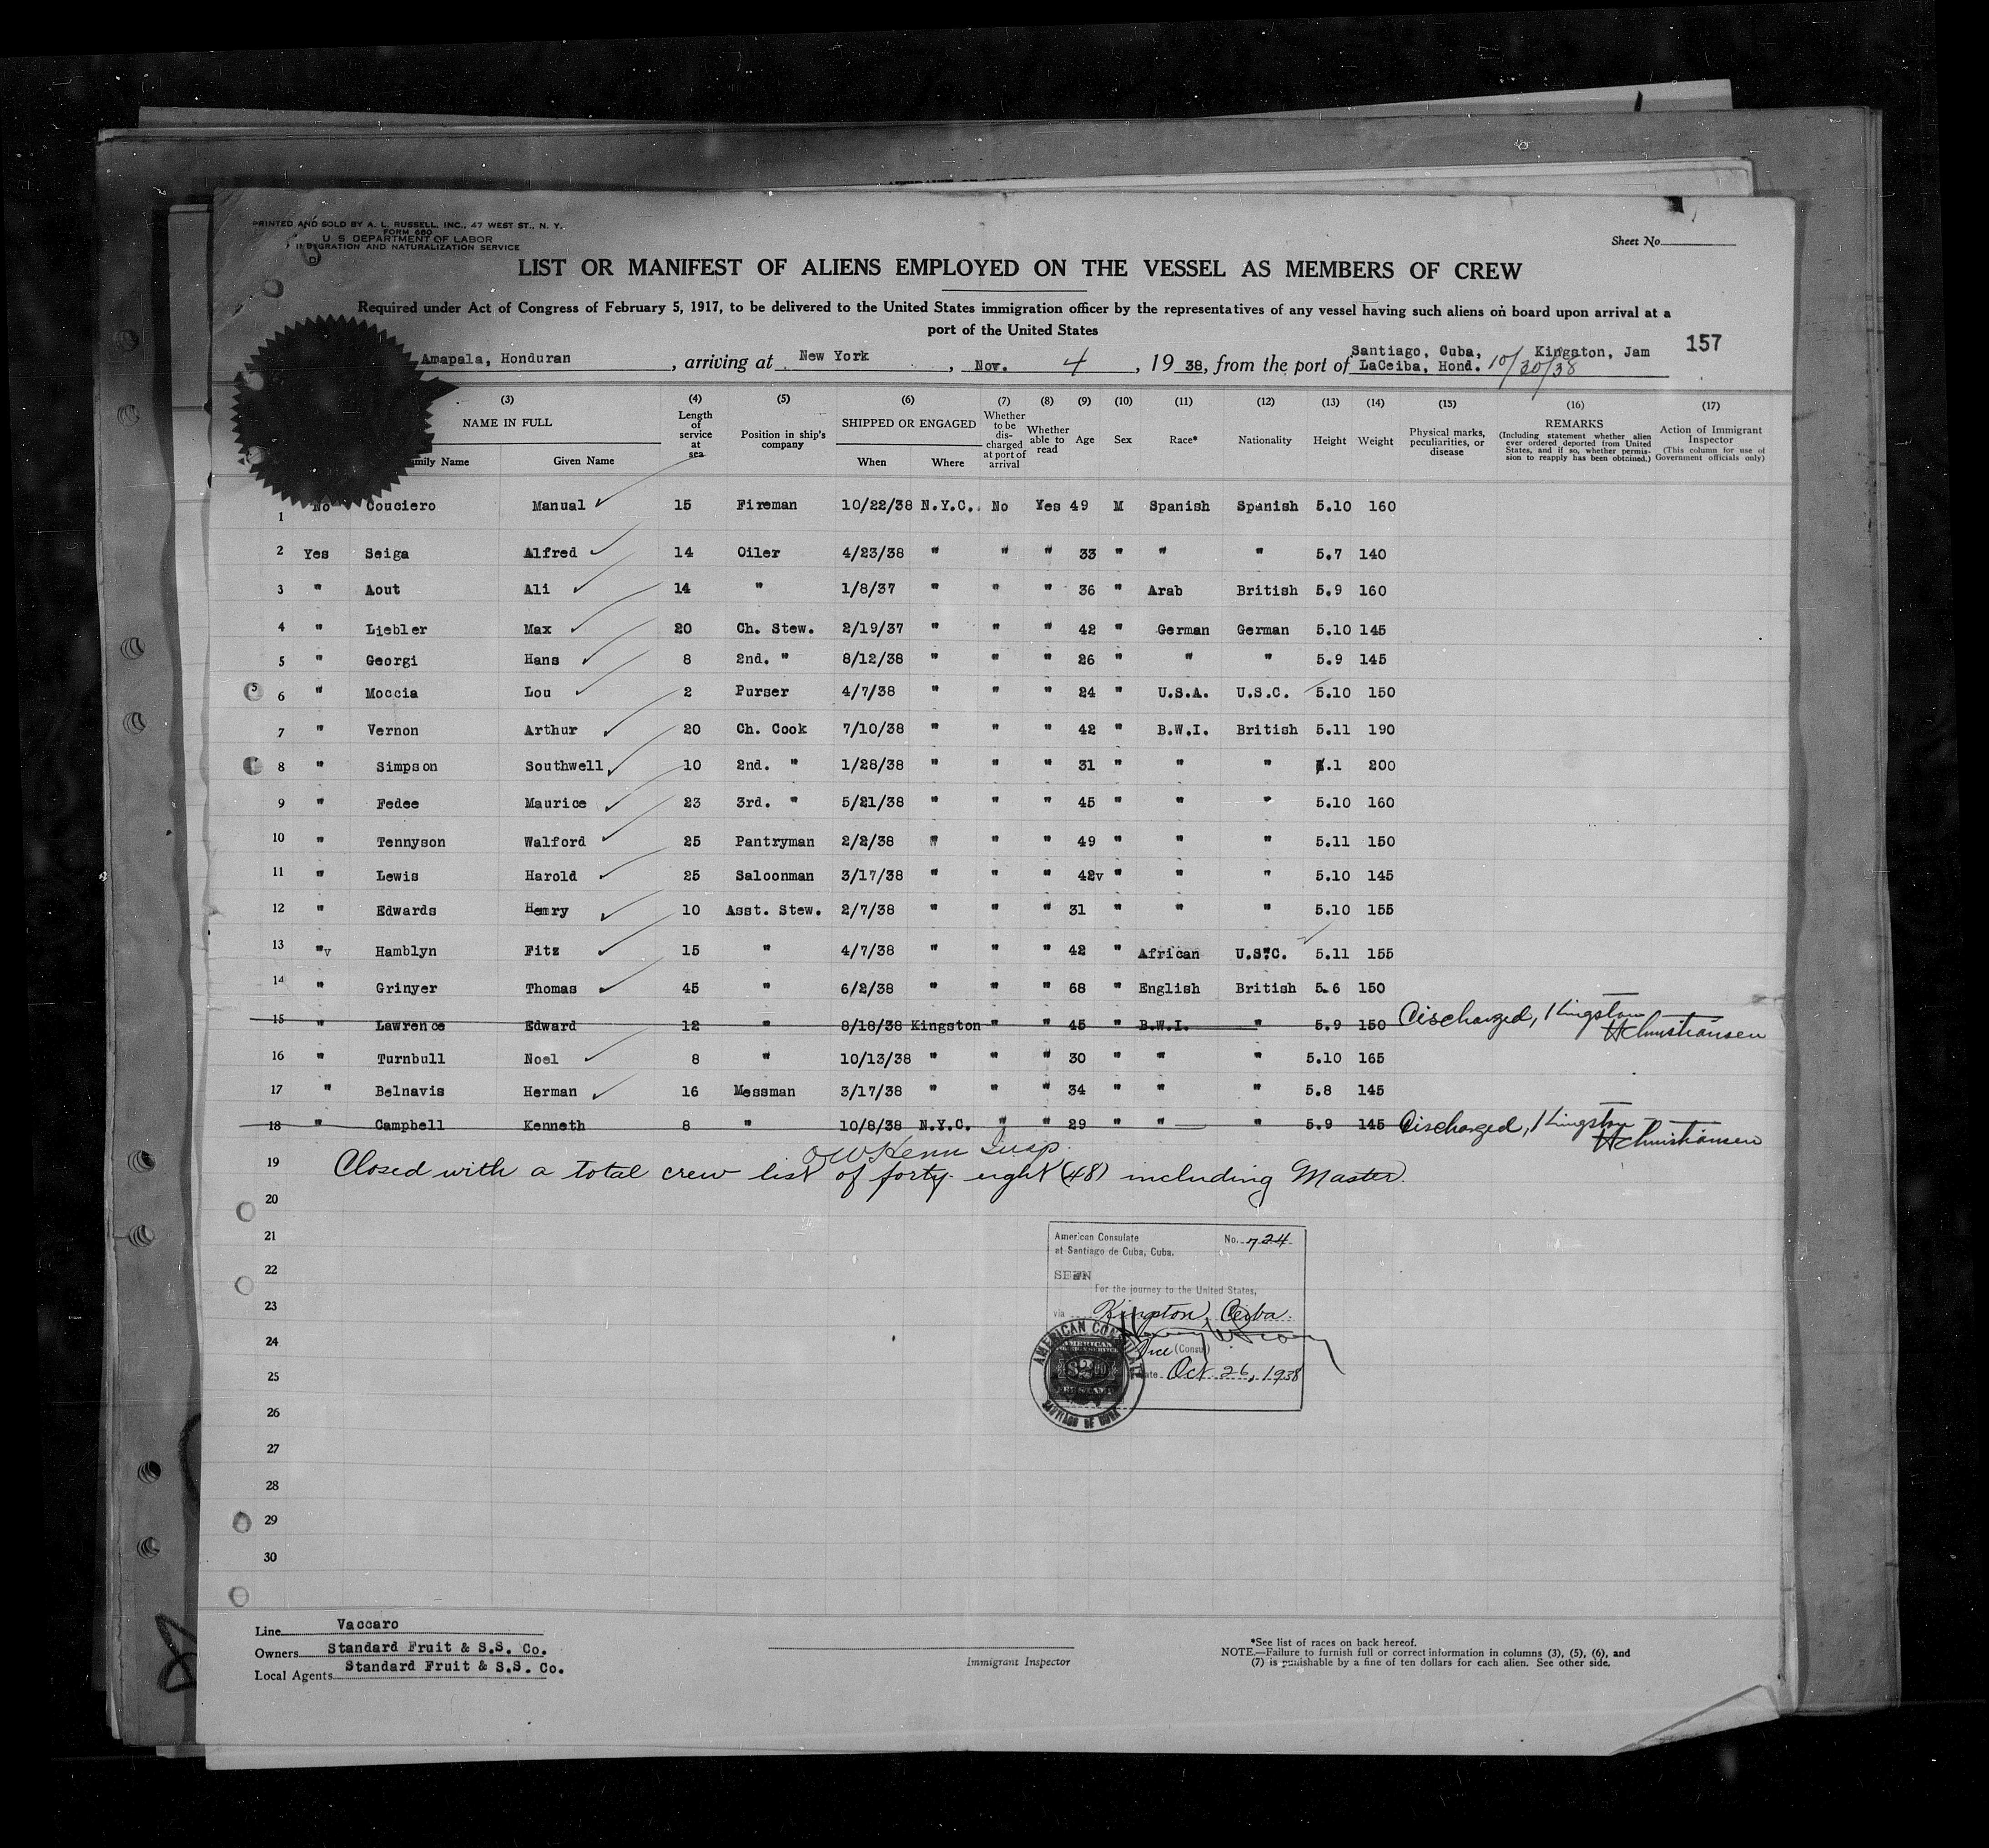 PRINTED AND SOLD BY A. L. RUSSELL, INC., 47 WEST ST., N. Y.
FORM 680
U. S. DEPARTMENT OF LABOR
IMMIGRATION AND NATURALIZATION SERVICE
Sheet No.
LIST OR MANIFEST OF ALIENS EMPLOYED ON THE VESSEL AS MEMBERS OF CREW
Required under Act of Congress of February 5, 1917, to be delivered to the United States immigration officer by the representatives of any vessel having such aliens on board upon arrival at a
port of the United States
157
Amapala, Honduran, arriving at New York, Nov. 4, 1938, from the port of Santiago, Cuba, Kingston, Jam
LaCeiba, Hond. 10/30/38
(3) (4) (5) (6) (7) (8) (9) (10) (11) (12) (13) (14) (15) (16) (17)
NAME IN FULL
Family Name Given Name
Length of service at sea
Position in ship's company
SHIPPED OR ENGAGED
When Where
Whether to be discharged at port of arrival
Whether able to read
Age Sex Race* Nationality Height Weight
Physical marks, peculiarities, or disease
REMARKS
(Including statement whether alien ever ordered deported from United States, and if so, whether permission to reapply has been obtained.)
Action of Immigrant Inspector
(This column for use of Government officials only)
1 No Couciero Manual 15 Fireman 10/22/38 N.Y.C. No Yes 49 M Spanish Spanish 5.10 160
2 Yes Seiga Alfred 14 Oiler 4/23/38 " " " 33 " " " 5.7 140
3 " Aout Ali 14 " 1/8/37 " " " 36 " Arab British 5.9 160
4 " Liebler Max 20 Ch. Stew. 2/19/37 " " " 42 " German German 5.10 145
5 " Georgi Hans 8 2nd. " 8/12/38 " " " 26 " " " 5.9 145
6 " Moccia Lou 2 Purser 4/7/38 " " " 24 " U.S.A. U.S.C. 5.10 150
7 " Vernon Arthur 20 Ch. Cook 7/10/38 " " " 42 " B.W.I. British 5.11 190
8 " Simpson Southwell 10 2nd. " 1/28/38 " " " 31 " " " 6.1 200
9 " Fedee Maurice 23 3rd. " 5/21/38 " " " 45 " " " 5.10 160
10 " Tennyson Walford 25 Pantryman 2/2/38 " " " 49 " " " 5.11 150
11 " Lewis Harold 25 Saloonman 3/17/38 " " " 42v " " " 5.10 145
12 " Edwards Henry 10 Asst. Stew. 2/7/38 " " " 31 " " " 5.10 155
13 "v Hamblyn Fitz 15 " 4/7/38 " " " 42 " African U.S.C. 5.11 155
14 " Grinyer Thomas 45 " 6/2/38 " " " 68 " English British 5.6 150
15 " Lawrence Edward 12 " 8/18/38 Kingston " " 45 " B.W.I. " 5.9 150 Discharged, Kingston
HChristiansen
16 " Turnbull Noel 8 " 10/13/38 " " " 30 " " " 5.10 165
17 " Belnavis Herman 16 Messman 3/17/38 " " " 34 " " " 5.8 145
18 " Campbell Kenneth 8 " 10/8/38 N.Y.C. " " 29 " " " 5.9 145 Discharged, Kingston
HChristiansen
19 Closed with a total crew list of forty eight (48) including Master.
20
21
22
23
24
25
26
27
28
29
30
American Consulate No. 724
at Santiago de Cuba, Cuba.
SEEN
For the journey to the United States,
via Kingston, Ceiba.
Vice (Consul)
Date Oct. 26, 1938
AMERICAN CONSULATE
SANTIAGO DE CUBA
Line Vaccaro
Owners Standard Fruit & S.S. Co.
Local Agents Standard Fruit & S.S. Co.
Immigrant Inspector
*See list of races on back hereof.
NOTE.—Failure to furnish full or correct information in columns (3), (5), (6), and
(7) is punishable by a fine of ten dollars for each alien. See other side.